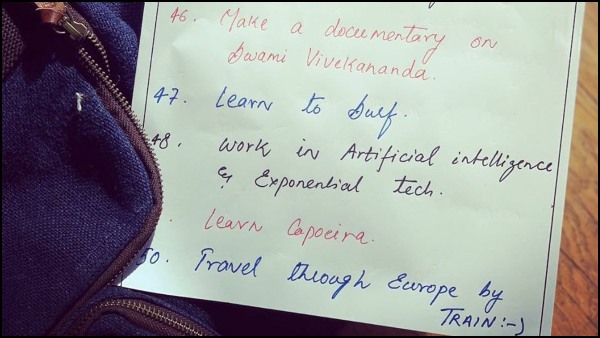 46. Make a documentary on
Swami Vivekananda.
47. Learn to Surf.
48. Work in Artificial intelligence
& Exponential tech.
. Learn Capoeira.
50. Travel through Europe by
TRAIN :-)